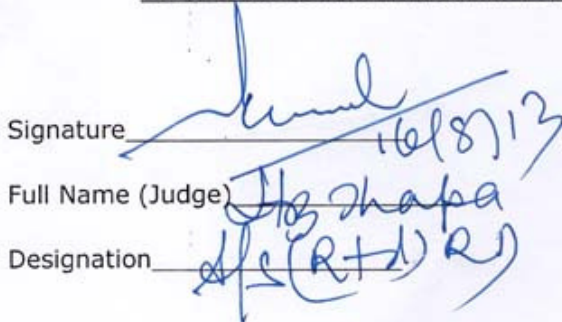 Signature
16/8/13
Full Name (Judge) Thapa
Designation A/S (R+d) RD